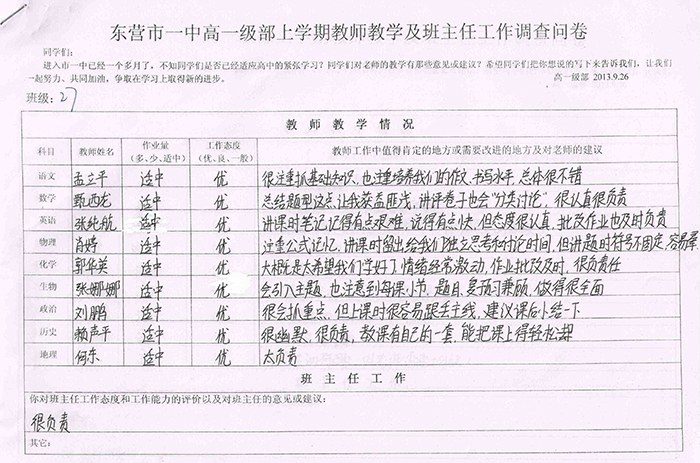 东营市一中高一级部上学期教师教学及班主任工作调查问卷
同学们：
进入市一中已经一个多月了，不知同学们是否已经适应高中的紧张学习？同学们对老师的教学有那些意见或建议？希望同学们把你想说的写下来告诉我们，让我们
一起努力、共同加油，争取在学习上取得新的进步。 高一级部 2013.9.26
班级：27
教师教学情况
科目 教师姓名 作业量（多、少、适中） 工作态度（优、良、一般） 教师工作中值得肯定的地方或需要改进的地方及对老师的建议
语文 孟立平 适中 优 很注重抓基础知识，也注重培养我们的作文、书写水平，总体很不错
数学 甄西龙 适中 优 总结题型这点让我获益匪浅，讲评卷子也会“分类讨论”，很认真很负责
英语 张纯航 适中 优 讲课时笔记记得有点艰难，说得有点快，但态度很认真，批改作业也及时负责
物理 肖婷 适中 优 注重公式记忆，讲课时留出给我们独立思考和讨论时间，但讲题时符号不固定，容易
化学 郭华英 适中 优 大概是太希望我们学好了，情绪经常激动，作业批改及时，很负责任
生物 张娜娜 适中 优 会引入主题，也注意到每课小节，题目、复预习兼顾，做得很全面
政治 刘鹏 适中 优 很会抓重点，但上课时很容易跟丢主线，建议课后小结一下
历史 赖声平 适中 优 很幽默，很负责，教课有自己的一套，能把课上得轻松
地理 何东 适中 优 太负责
班主任工作
你对班主任工作态度和工作能力的评价以及对班主任的意见或建议：
很负责
其它：